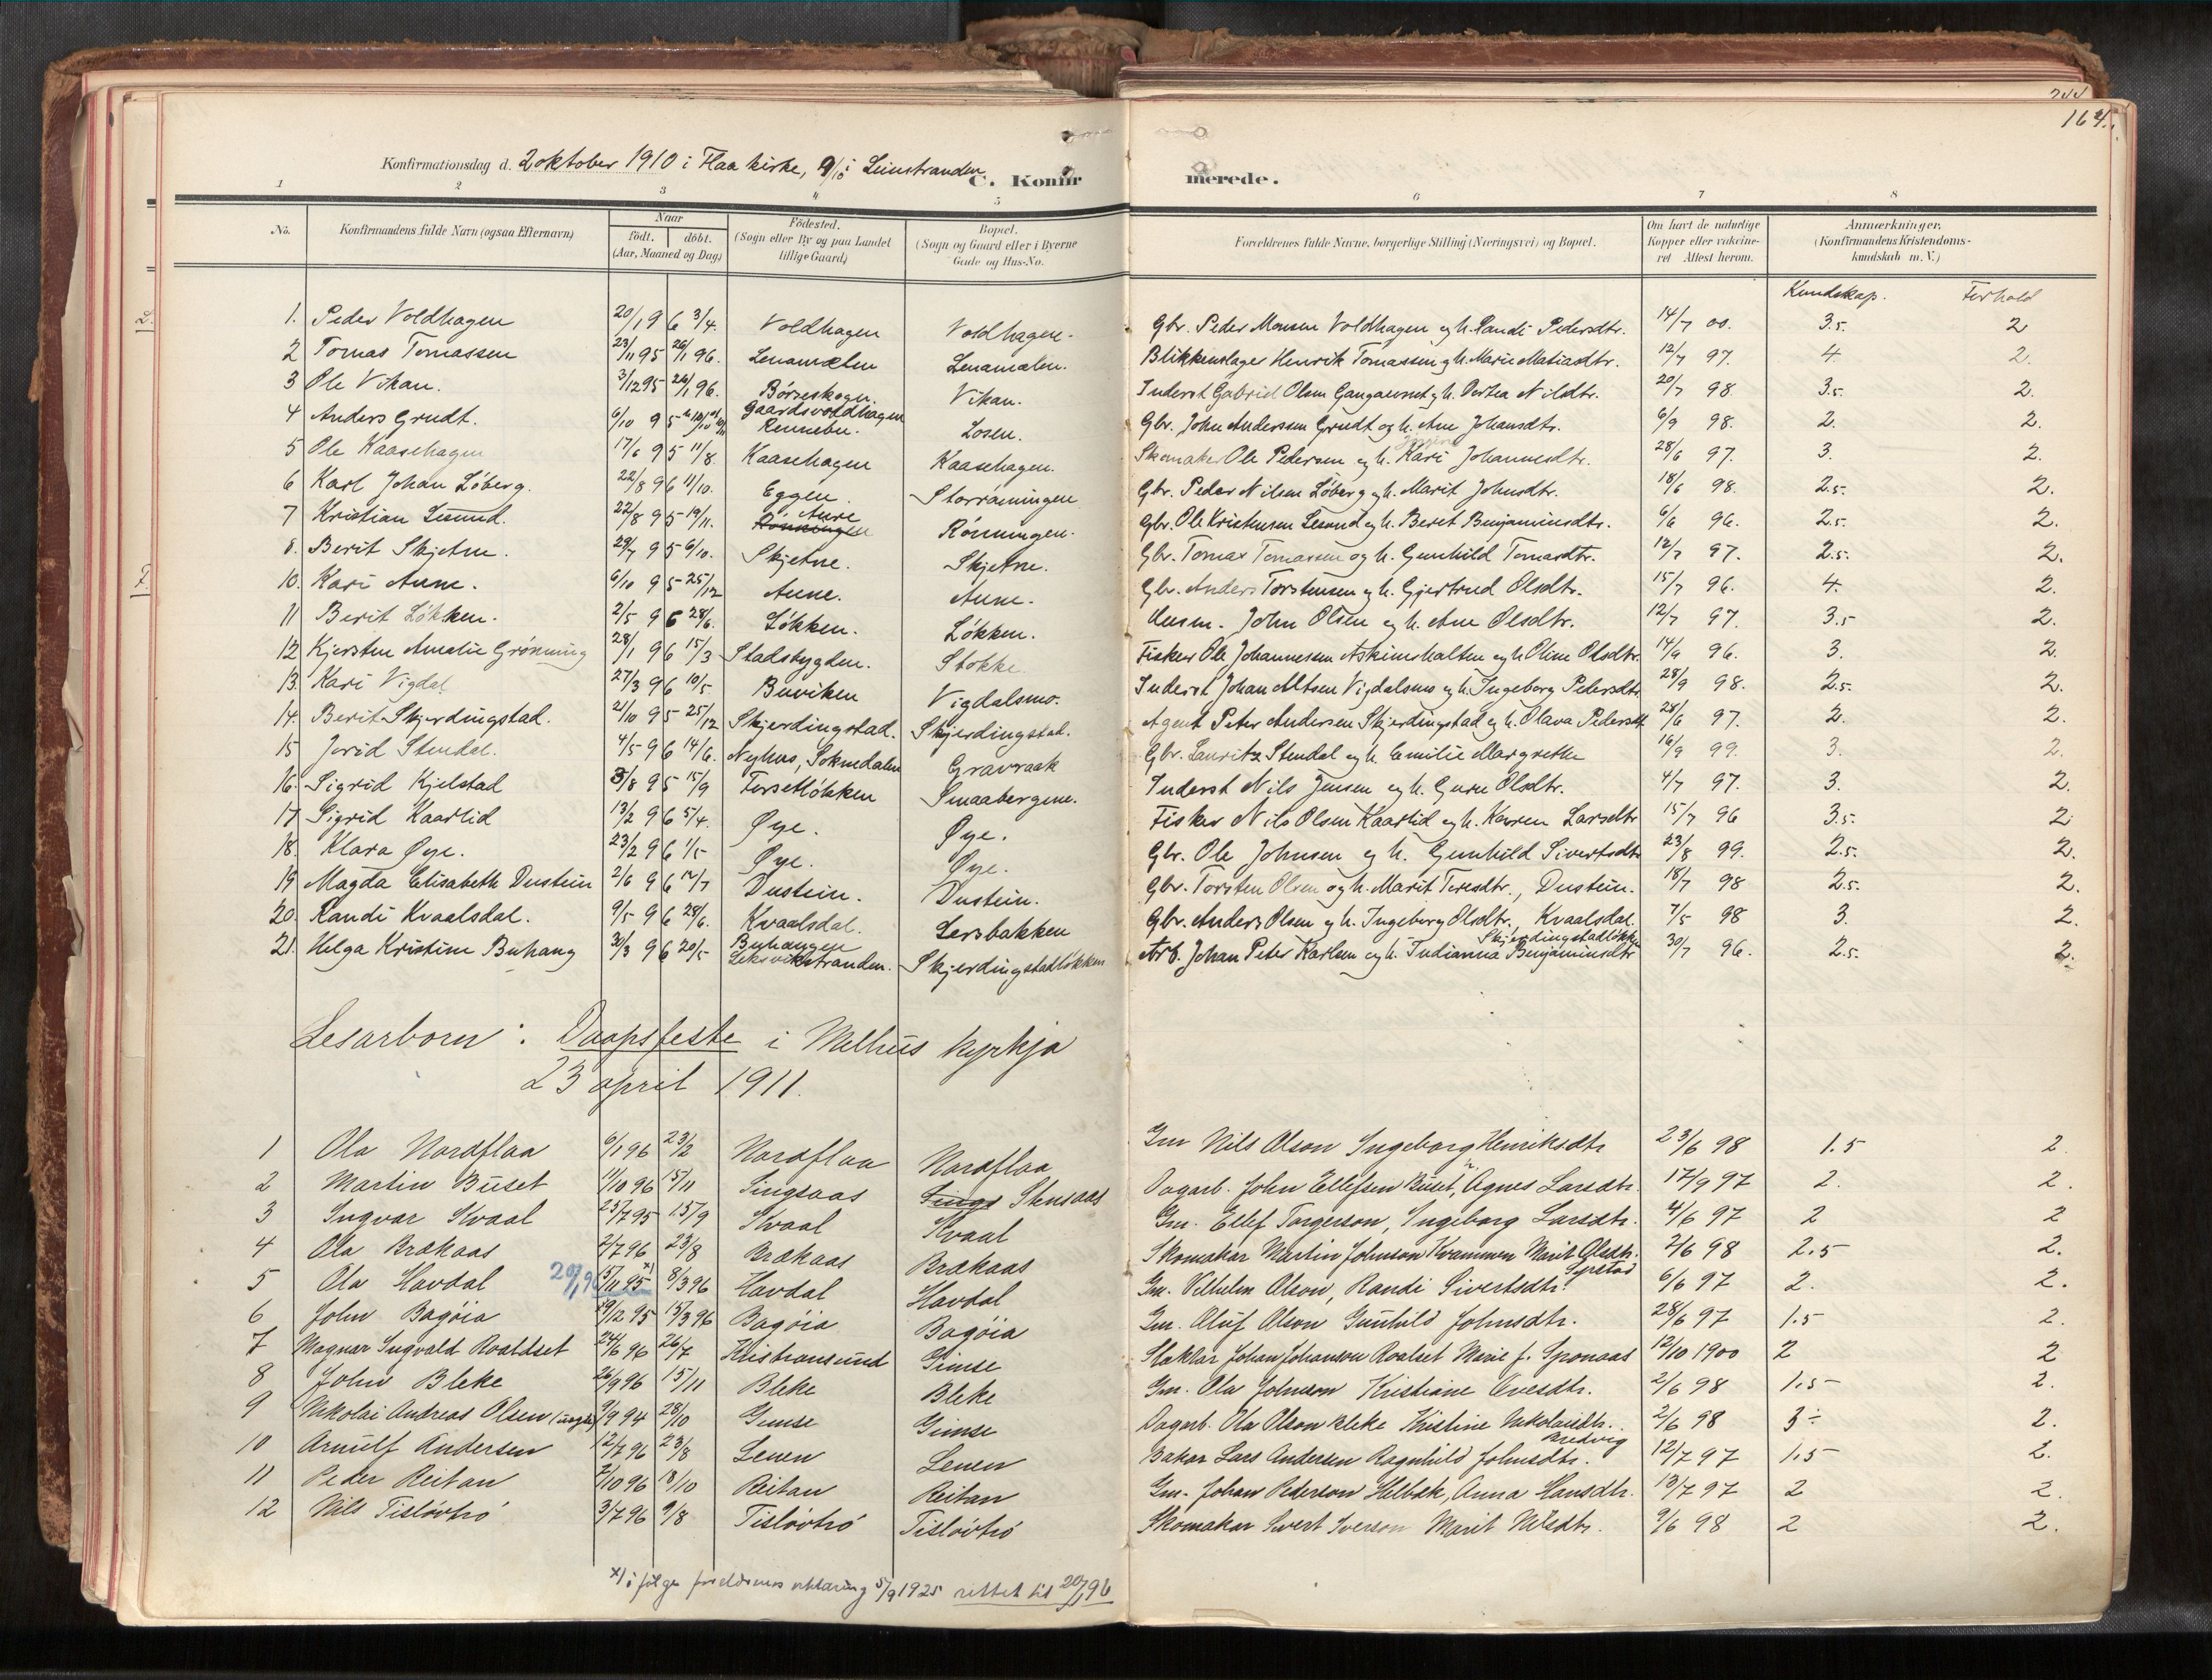 244
164.
Konfirmationsdag d. 2 oktober 1910 i Flaa kirke, 9/10 i Leinstranden
C. Konfirmerede.
1 2 3 4 5 6 7 8
No. Konfirmandens fulde Navn (ogsaa Efternavn) Naar födt. döbt. (Aar, Maaned og Dag) Födested. (Sogn eller By og paa Landet tillige Gaard) Bopæl. (Sogn og Gaard eller i Byerne Gade og Hus-No. Forældrenes fulde Navne, borgerlige Stilling (Næringsvei) og Bopæl. Om havt de naturlige Kopper eller vakcineret Attest herom. Anmærkninger. (Konfirmandens Kristendomskundskab m. V.)
Kundskap. Forhold
1. Peder Voldhagen 20/1 96 3/4. Voldhagen Voldhagen. Gbr. Peder Monsen Voldhagen og h. Randi Pedersdtr. 14/7 00. 3.5. 2
2 Tomas Tomassen 23/11 95 26/1 96. Lenamælen Lenamælen. Blikkenslager Henrik Tomassen og h. Marie Matiasdtr. 12/7 97. 4 2.
3 Ole Vikan. 3/12 95 26/1 96. Børseskogn. Vikan. Inderst Gabriel Olsen og h. 20/7 98. 3.5. 2.
4 Anders Grudt. 6/10 95 Gaardsvoldhagen Rennebu. Losen. Gbr. John Anderssen Grudt og h. Ane Johansdtr. 6/9 98. 2. 2.
5 Ole Kaasehagen 17/6 95 11/8. Kaasehagen Kaasehagen. Skomaker Ole Pedersen og h. Kari Johannesdtr. 28/6 97. 3. 2.
6 Karl Johan Löberg. 22/8 96 11/10. Eggen. Storrømningen Gbr. Peder Nilsen Löberg og h. Marit Johnsdtr. 18/6 98. 2.5. 2.
7 Kristian Lesund. 22/8 95 19/11. Aure Rönningen Rönningen. Gbr. Ole Kristensen Lesund og h. Beret Benjaminsdtr. 6/6 96. 2.5. 2.
8. Berit Skjetne. 29/7 95 6/10. Skjetne. Skjetne. Gbr. Tomas Tomassen og h. Gunhild Tomasdtr. 12/7 97. 2.5. 2.
10. Kari Aune. 6/10 95 25/12 Aune. Aune. Gbr. Anders Torstensen og h. Gjertrud Olsdtr. 15/7 96. 4. 2.
11 Berit Lökken. 2/5 96 28/6. Lökken. Lökken. Husm. John Olsen og h. Ane Olsdtr. 12/7 97. 3.5 2.
12 Kjersten Amalie Grönning 28/1 96 15/3 Stadsbygden. Stokke Fisker Ole Johannessen Askimshalten og h Oline Olsdtr. 14/9 96. 3. 2.
13. Kari Vigdal 27/3 96 10/5 Buviken Vigdalsmo. Inderst Johan Altsen Vigdalsmo og h. Ingeborg Pedersdtr. 28/9 98. 2.5. 2.
14. Berit Skjerdingstad. 21/10 95 25/12 Skjerdingstad. Skjerdingstad. Agent Peter Andersen Skjerdingstad og h. Olava Pedersdtr 28/6 97. 2. 2.
15 Jorid Stendal. 4/5 96 14/6. Nyhus, Soknedalen Gravraak Gbr. Lauritz Stendal og h. Emilie Margrethe 16/9 99. 3. 2.
16. Sigrid Kjelstad 3/8 95 15/9 Forsetlökken Smaabergene. Inderst Nils Jensen og h. Guru Olsdtr. 4/7 97. 3. 2.
17 Sigrid Kaarlid 13/2 96 5/4. Øye. Øye. Fisker Nils Olsen Kaarlid og h. Karen Larsdtr 15/7 96 3.5. 2
18. Klara Øye. 23/2 96 1/5 Øye. Øye. Gbr. Ole Johnsen og h. Gunhild Sivertsdtr 23/8 99. 2.5. 2.
19 Magda Elisabeth Dustein 2/6 96 12/7 Dustein. Dustein. Gbr. Torsten Olsen og h. Marit Teresdtr., Dustein. 18/7 98 2.5. 2.
20. Randi Kvaalsdal. 9/5 96 28/6. Kvaalsdal. Lersbakken Gbr. Anders Olsen og h. Ingeborg Olsdtr. Kvaalsdal. 7/5 98 3. 2.
21. Helga Kristine Buhang 30/3 96 20/5 Buhaugen Leksvikstranden. Skjerdingstadlökken Arb. Johan Peter Karlsen og h. Indianna Benjaminsdtr Skjerdingstadlökken 30/7 96. 2.5. 2.
Lesarborn: Daapsfeste i Melhus kyrkja
23 april 1911.
1 Ola Nordflaa 6/1 96 23/2 Nordflaa Nordflaa Gm Nils Olson Ingeborg Henriksdtr 23/6 98 1.5 2
2 Martin Buset 11/10 96 15/11 Singsaas Sings Stensaas Dagarb. John Ellefsen Buset, Agnes Larsdtr. 17/9 97 2. 2.
3 Ingvar Kvaal 23/7 95 15/9 Kvaal Kvaal Gm. Ellef Torgerson, Ingeborg Larsdtr. 4/6 97 2 2
4 Ola Brækaas 2/7 96 23/8 Brækaas Brækaas Skomakar Martin Johnson Kvammen Marit Olsdtr. 2/6 98 2.5 2.
5 Ola Havdal 20/1 96 5/11 95 x) 8/3 96 Havdal Havdal Gm. Vilhelm Olson, Randi Sivertsdtr. Syrstad 6/6 97 2. 2.
6 John Bagöia 29/12 95 15/3 96 Bagöia Bagöia Gm. Oluf Olson Gunhild Johnsdtr. 28/6 97 1.5 2.
7 Magnar Ingvald Roaldset 24/6 96 26/7 Kristiansund Gimse Slaktar Johan Johanson Roalset Marie f. Sponaas 12/10 1900 2 2
8 John Bleke 26/9 96 15/11 Bleke Bleke Gm. Ola Johnson Kristiane Ovesdtr. 2/6 98 1.5 2.
9 Nikolai Andreas Olsen 9/9 94 28/10 Gimse Gimse Dagarb. Ola Olson Bleke Kristine Nikolaisdtr. 2/6 98 3÷ 2.
10 Arnulf Andersen 12/7 96 23/8 Lenen Lenen Bakar Lars Andersen Ragnhild Johnsdtr. Bredvig 12/7 97 1.5 2.
11 Peder Reitan 7/10 96 18/10 Reitan Reitan Gm. Johan Pederson Helbæk, Anna Hansdtr. 13/7 97 2 2.
12 Nils Tislövtrö 3/7 96 9/8 Tislövtrö Tislövtrö Skomakar Sivert Iverson Marit Nilsdtr. 9/6 98 2 2.
x) i følge foreldrenes erklæring 5/9 1925 rettet til 20/1 96